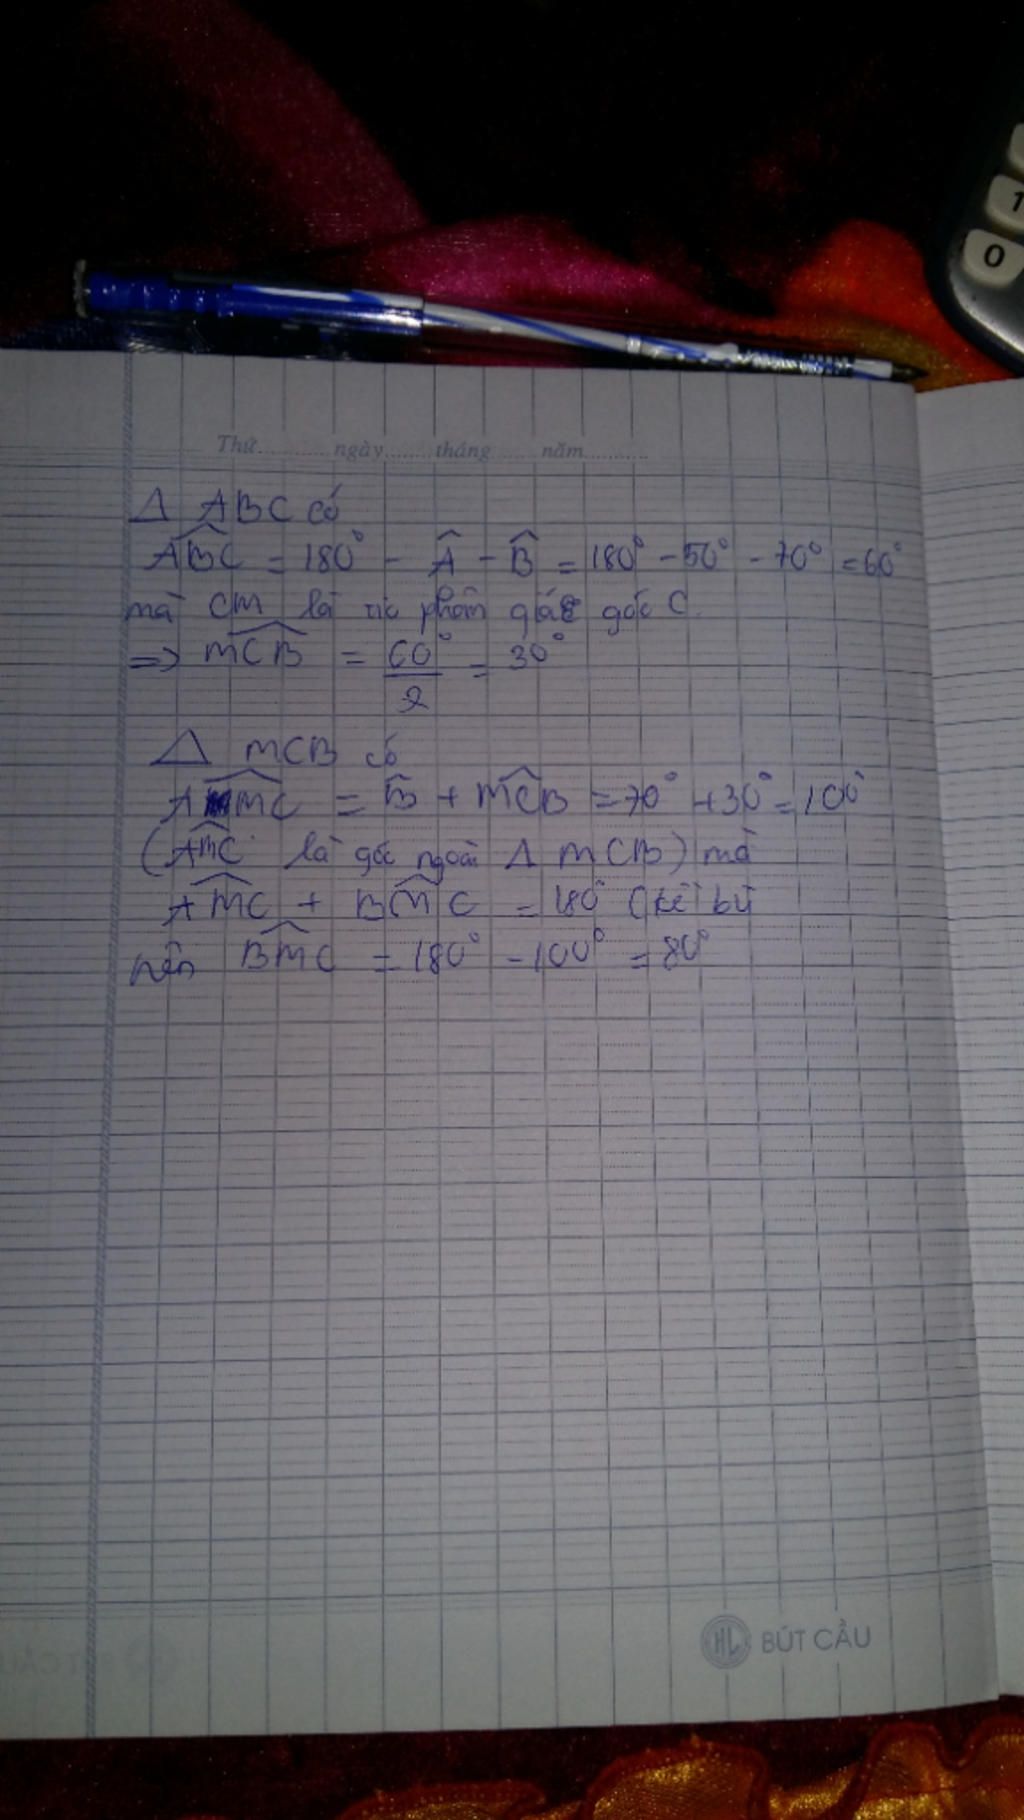 1
0
Thứ.............ngày........tháng........năm............
Δ ABC có
ABC = 180° - Â - B̂ = 180° - 50° - 70° = 60°
mà CM là phân giác góc C.
=> MCB = 60°/2 = 30°
Δ MCB có
AMC = B̂ + MCB = 70° + 30° = 100°
(AMC là góc ngoài Δ MCB) mà
AMC + BMC = 180° (kề bù
nên BMC = 180° - 100° = 80°
HL BÚT CẦU